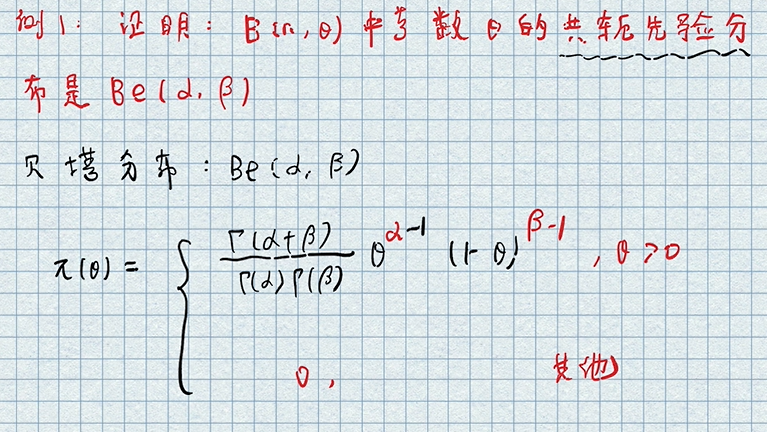 例1: 证明: B(n, θ) 中参数 θ 的共轭先验分
布是 Be(α, β)
贝塔分布: Be(α, β)
π(θ) = { Γ(α+β) / Γ(α)Γ(β) θ^{α-1} (1-θ)^{β-1}, θ>0
0, 其他